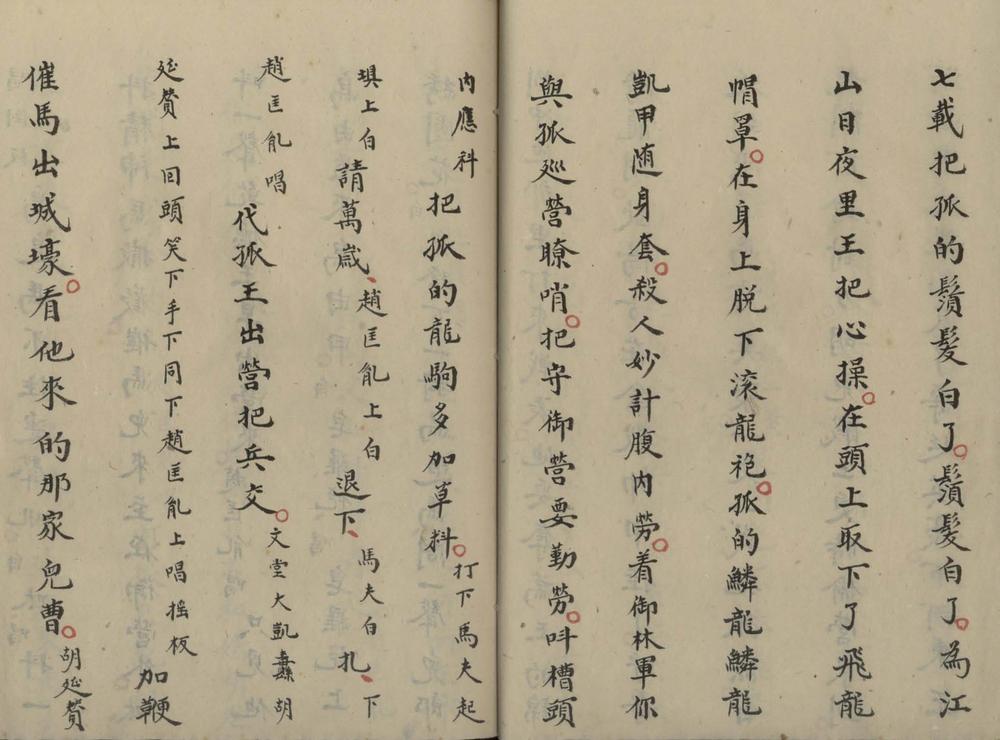 七載把孤的鬚髮白了鬚髮白了為江
山日夜里王把心操在頭上取下了飛龍
帽罩在身上脱下滚龍袍孤的鱗龍鱗龍
凱甲随身套殺人妙計腹内勞着御林軍你
與孤廵營瞭哨把守御營要勤勞呌槽頭
内應科 把孤的龍駒多加草料 打下馬夫起
上白 請萬歳 趙匡胤上白 退下 馬夫白 扎 下
趙匡胤唱 代孤王出營把兵交 文堂大凱纛胡
延賛上回頭笑下手下同下趙匡胤上唱摇板 加鞭
催馬出城壕看他來的那家兒曹 胡延賛